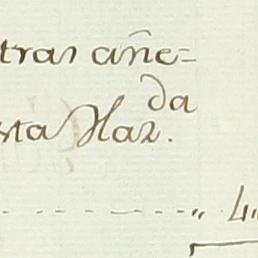 tras añe=
da
sta Haz.
" 4"